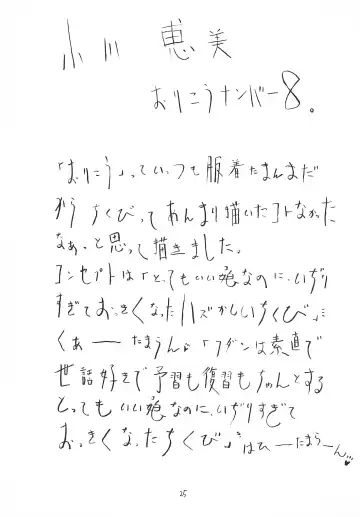 小川 恵美
おりこうナンバー8。
「おりこう」っていっつも服着たまんまだ
から ちくびってあんまり描いたコトなかった
なぁ。と思って描きました。
コンセプトは「とってもいい娘なのに、いぢり
すぎておっきくなったハズかしいちくび」に
くぁーーたまらんっ「フダンは素直で
世話好きで予習も復習もちゃんとする
とってもいい娘なのに、いぢりすぎて
おっきくなったちくび」きはひーーたまらーん♥
25